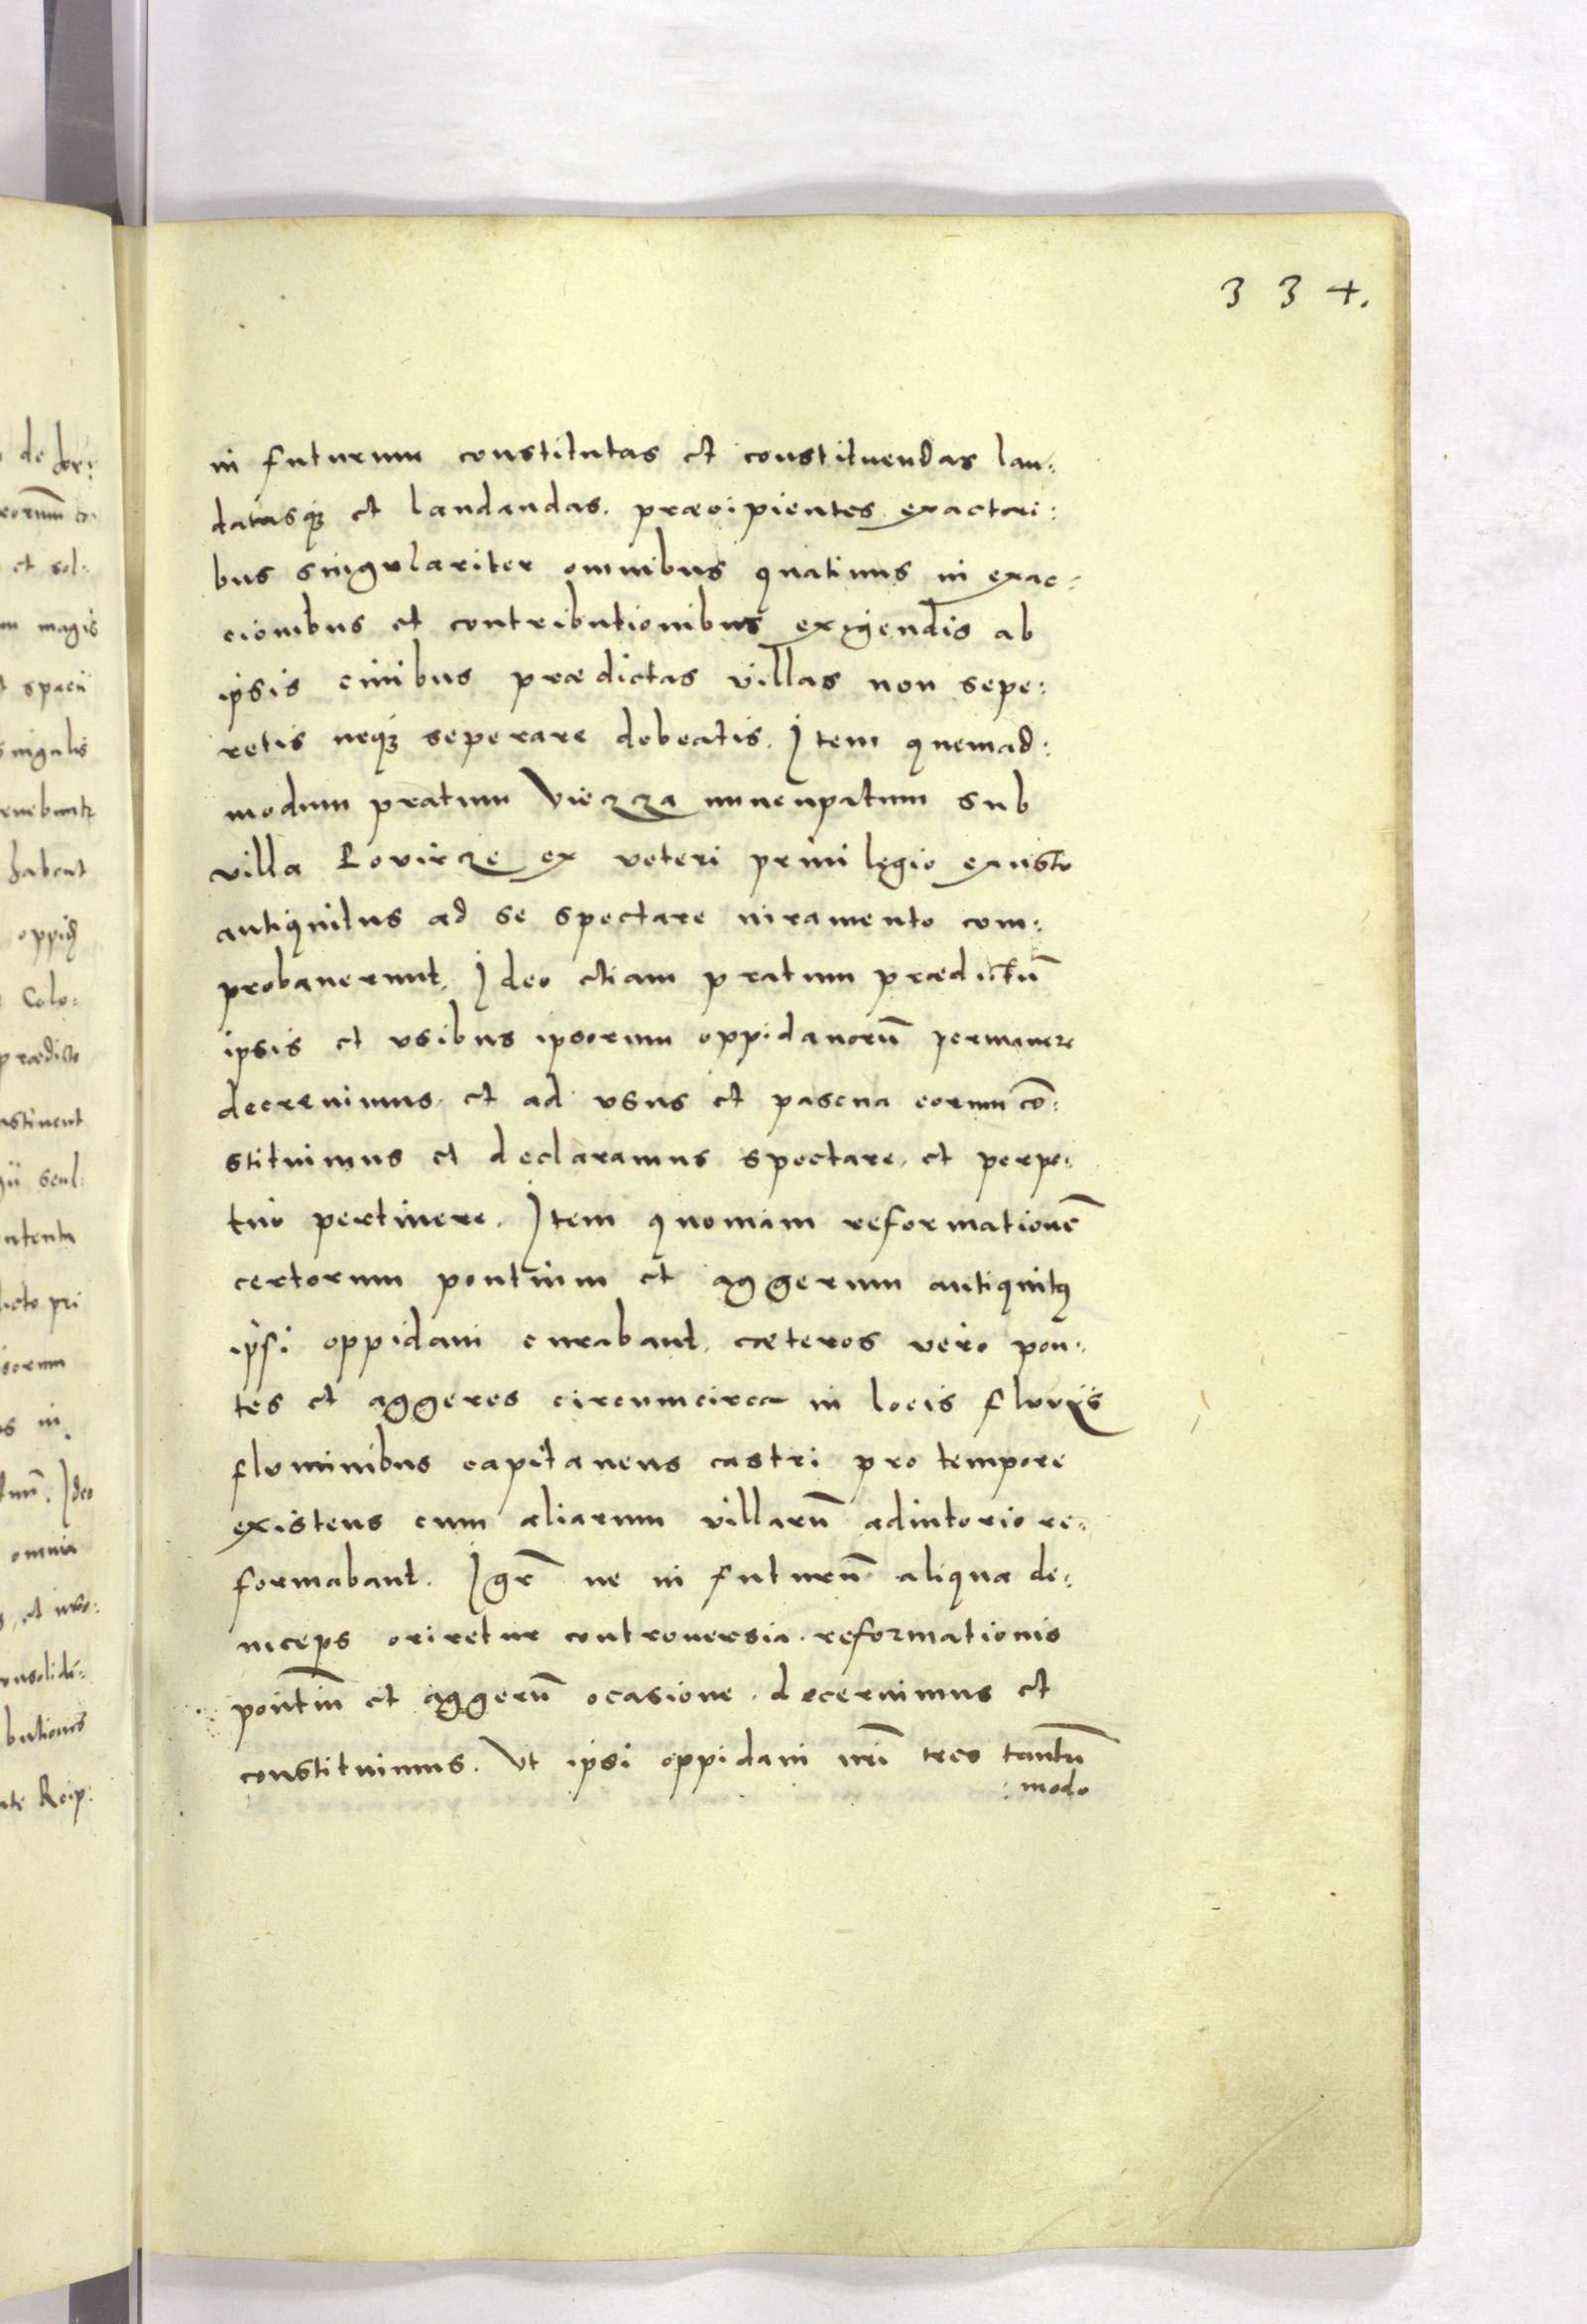 334.
in futurum constitutas et constituendas lau:
datasq3 et laudandas. præcipientes exactori:
bus singulariter omnibus quatinus in exac:
cionibus et contributionibus exigendis ab
ipsis ciuibus prædictas villas non sepe:
retis neq3 seperare debeatis. Item quemad:
modum pratum Viezza nuncupatum sub
villa Lovircze ex veteri priuilegio exusto
antiquitus ad se spectare iuramento com:
probauerunt. Ideo etiam pratum prædictū
ipsis et vsibus ipsorum oppidanorū permanere
decreuimus. et ad vsus et pascua eorum cō:
stituimus et declaramus spectare, et perpe:
tuo pertinere. Item quoniam reformationē
certorum pontium et aggerum antiquitus
ipsi oppidani curabant. cæteros vero pon:
tes et aggeres circumcirca in locis fluvijs
fluminibus capitaneus castri pro tempore
existens cum aliarum villarū adiutorio re:
formabant. Igr̄ ne in futurū aliqua de:
inceps oriretur controuersia. reformationis
pontiū et aggerū ocasione. decernimus et
constituimus. Vt ipsi oppidani nr̄i tres tantū
:modo
de
et sol:
magis
spacii
singulis
habent
Colo:
prædicto
omnia